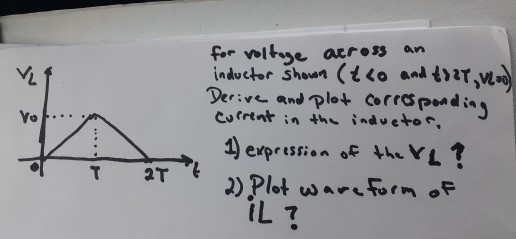 for voltage across an
VL
inductor shown (t<0 and t>2T, VL=0)
Derive and plot corresponding
Vo
current in the inductor.
1) expression of the VL ?
0 T 2T t
2) Plot waveform of
iL ?